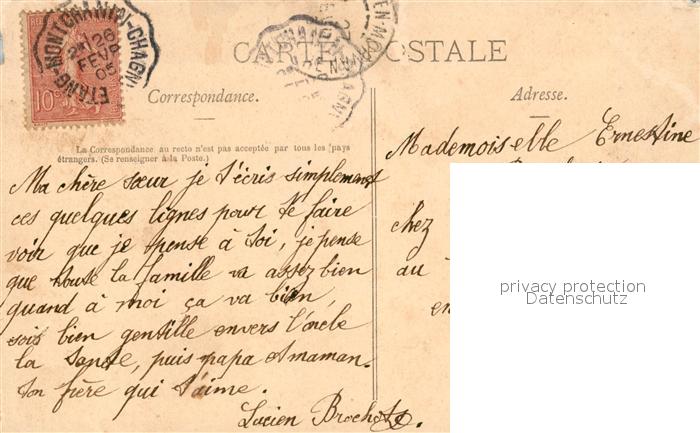 ETANG-MONTCHANIN-CHAGNY
26
FEVR
05
10
CARTE POSTALE
Correspondance.
Adresse.
La Correspondance au recto n'est pas acceptée par tous les pays
étrangers. (Se renseigner à la Poste.)
Ma chère sœur je t'écris simplement
ces quelques lignes pour te faire
voir que je pense à toi, je pense
que toute la famille va assez bien
quand à moi ça va bien,
sois bien gentille envers l'oncle
la tante, puis papa et maman.
Ton frère qui t'aime.
Lucien Brochot
Mademoiselle Ernestine
chez
au
en
privacy protection
Datenschutz